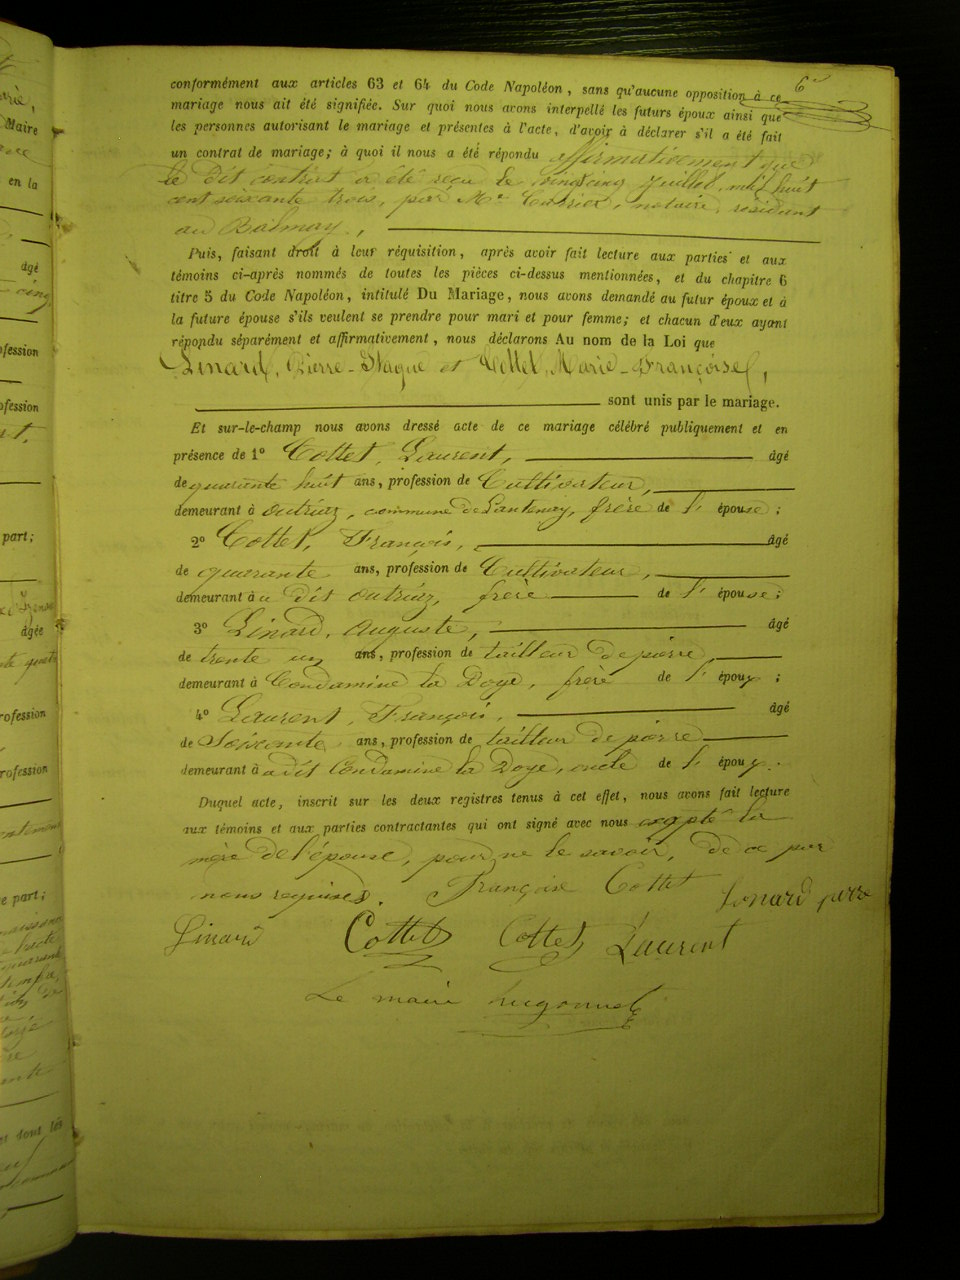 6
conformément aux articles 63 et 64 du Code Napoléon, sans qu'aucune opposition à ce
mariage nous ait été signifiée. Sur quoi nous avons interpellé les futurs époux ainsi que
les personnes autorisant le mariage et présentes à l'acte, d'avoir à déclarer s'il a été fait
un contrat de mariage; à quoi il nous a été répondu affirmativement que
le dit contrat a été reçu le vingt cinq Juillet, mil huit
cent soixante trois, par Me notaire, résidant
au Balmay,
Puis, faisant droit à leur réquisition, après avoir fait lecture aux parties et aux
témoins ci-après nommés de toutes les pièces ci-dessus mentionnées, et du chapitre 6
titre 5 du Code Napoléon, intitulé Du Mariage, nous avons demandé au futur époux et à
la future épouse s'ils veulent se prendre pour mari et pour femme; et chacun d'eux ayant
répondu séparément et affirmativement, nous déclarons Au nom de la Loi que
Linard, Pierre- et Cottet, Marie-Françoise,
sont unis par le mariage.
Et sur-le-champ nous avons dressé acte de ce mariage célébré publiquement et en
présence de 1° Cottet, Laurent, âgé
de quarante huit ans, profession de Cultivateur,
demeurant à outriaz, commune de Lantenay, frère de l' épouse;
2° Cottet, François, âgé
de quarante ans, profession de Cultivateur,
demeurant à u dit outriaz, frère de l' épouse;
3° Linard, Auguste, âgé
de trente un ans, profession de tailleur de pierre,
demeurant à Condamine la Doye, frère de l' époux;
4° Laurent, François, âgé
de Soixante ans, profession de tailleur de pierre
demeurant à adit Condamine la Doye, oncle de l' époux.
Duquel acte, inscrit sur les deux registres tenus à cet effet, nous avons fait lecture
aux témoins et aux parties contractantes qui ont signé avec nous excepté la
mère de l'épouse, pour ne le savoir, de ce par
nous requises. Françoise Cottet Linard père
Linard Cottet Cottet Laurent
Le maire hugonnet